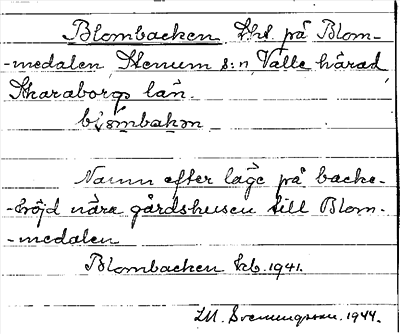 Blombacken Lht. på Blom-
-medalen, Stenum s:n, Valle härad,
Skaraborgs län.
Namn efter läge på backe-
-höjd nära gårdshusen till Blom-
-medalen
Blombacken kb. 1941.
J.M. Svenningsson. 1944.